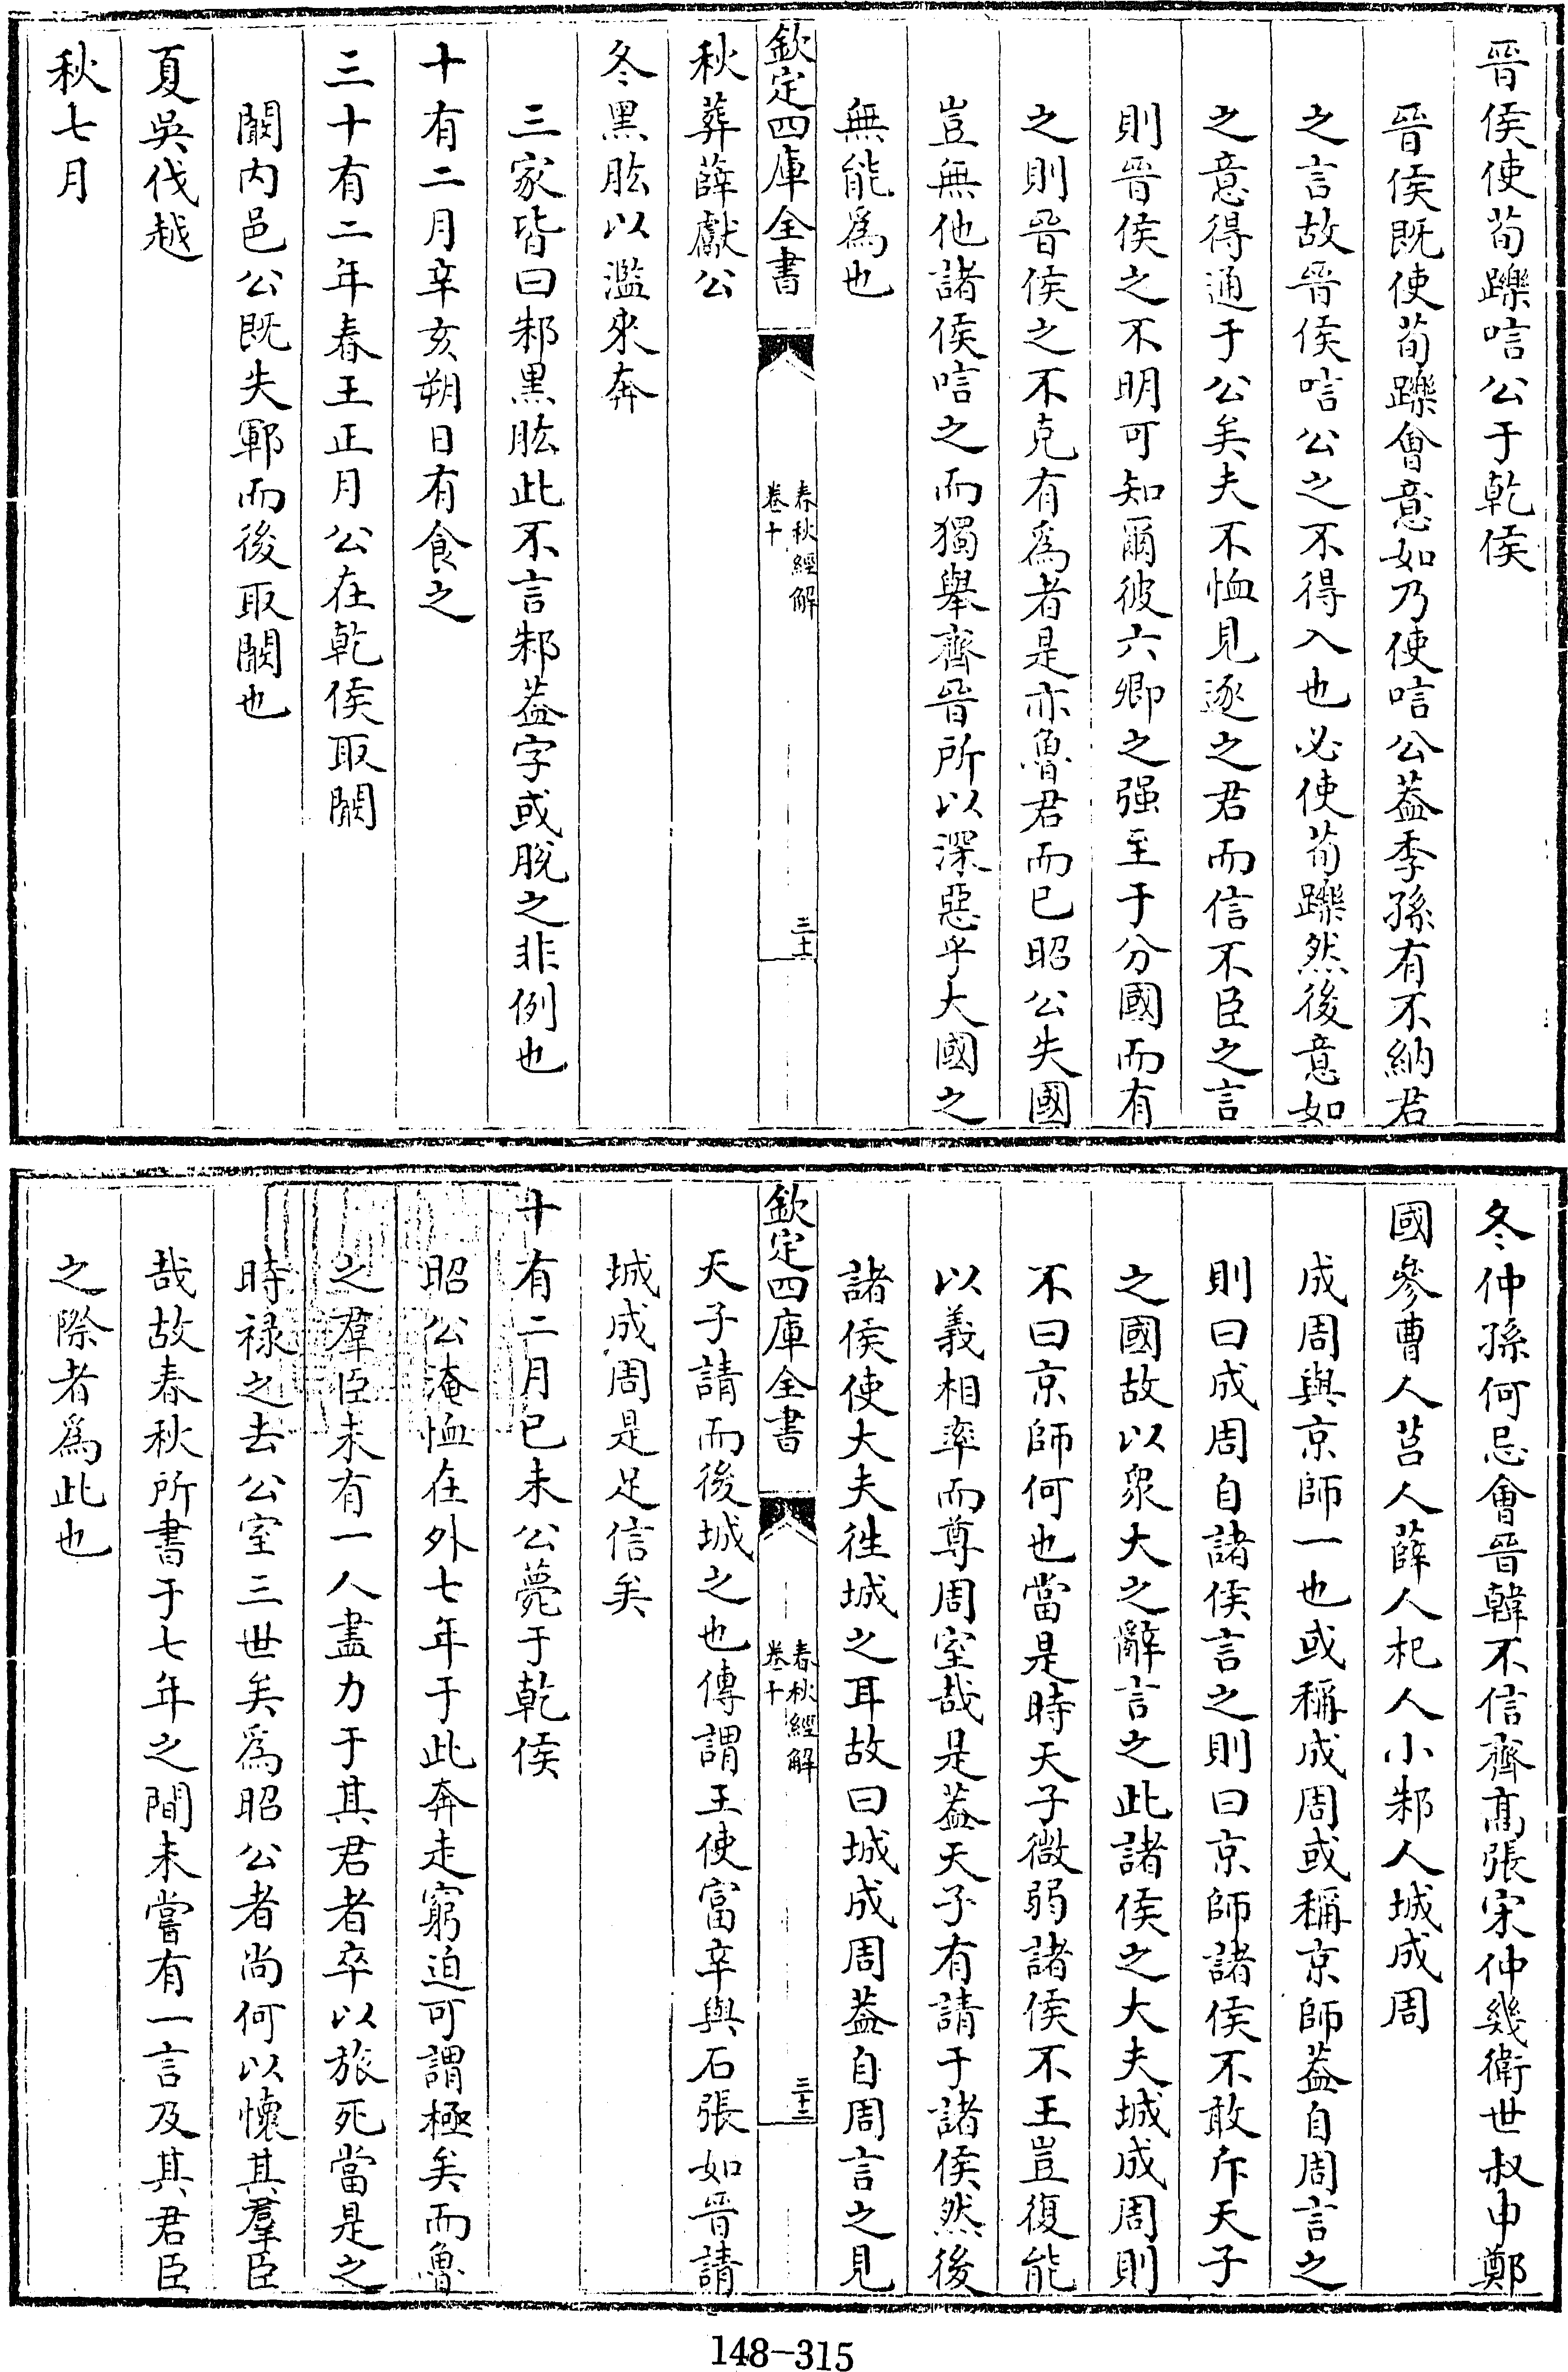 晉侯使荀躒唁公于乾侯
晉侯既使荀躒會意如乃使唁公葢季孫有不納君
之言故晉侯唁公之不得入也必使荀躒然後意如
之意得通于公矣夫不恤見逐之君而信不臣之言
則晉侯之不明可知爾彼六卿之强至于分國而有
之則晉侯之不克有為者是亦魯君而已昭公失國
豈無他諸侯唁之而獨舉齊晉所以深惡乎大國之
無能爲也
欽定四庫全書
春秋經解
卷十
三十一
秋葬薛獻公
冬黑肱以濫來奔
三家皆曰邾黑肱此不言邾葢字或脫之非例也
十有二月辛亥朔日有食之
三十有二年春王正月公在乾侯取闞
闞内邑公既失鄆而後取闞也
夏吳伐越
秋七月
冬仲孫何忌會晉韓不信齊髙張宋仲幾衛世叔申鄭
國參曹人莒人薛人杞人小邾人城成周
成周與京師一也或稱成周或稱京師葢自周言之
則曰成周自諸侯言之則曰京師諸侯不敢斥天子
之國故以衆大之辭言之此諸侯之大夫城成周則
不曰京師何也當是時天子微弱諸侯不王豈復能
以義相率而尊周室哉是葢天子有請于諸侯然後
諸侯使大夫徃城之耳故曰城成周葢自周言之見
欽定四庫全書
春秋經解
卷十
三十二
天子請而後城之也傳謂王使富辛與石張如晉請
城成周是足信矣
十有二月已未公薨于乾侯
昭公淹恤在外七年于此奔走窮迫可謂極矣而魯
之羣臣未有一人盡力于其君者卒以旅死當是之
時禄之去公室三世矣爲昭公者尚何以懷其羣臣
哉故春秋所書于七年之間未嘗有一言及其君臣
之際者爲此也
148-315